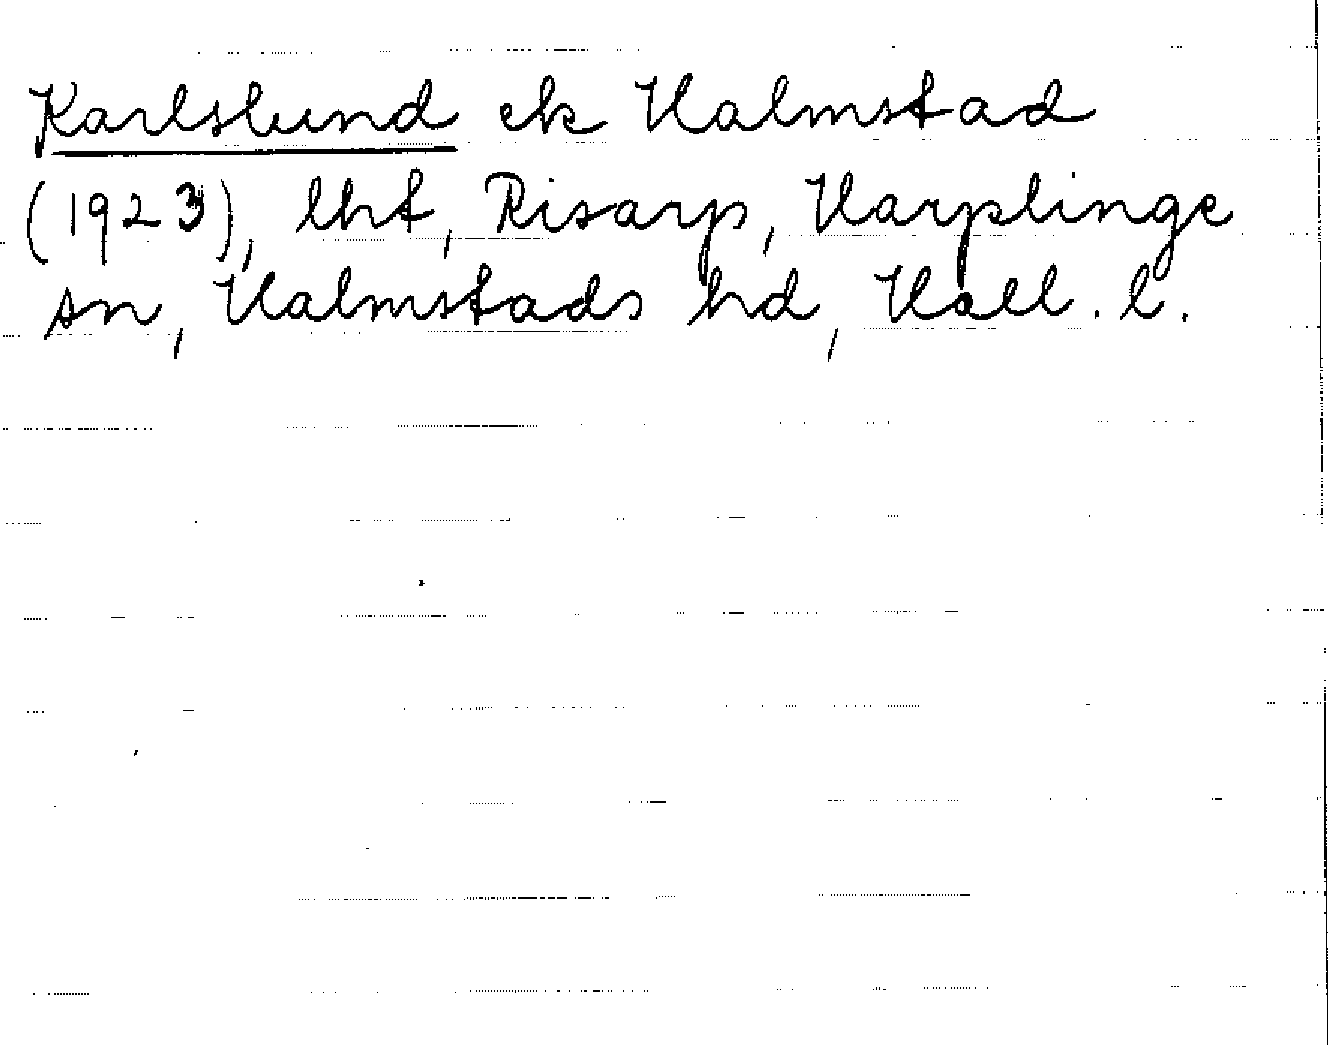 Karlslund ek Halmstad
(1923), lht, Risarp, Harplinge
sn, Halmstads hd, Hall. l.